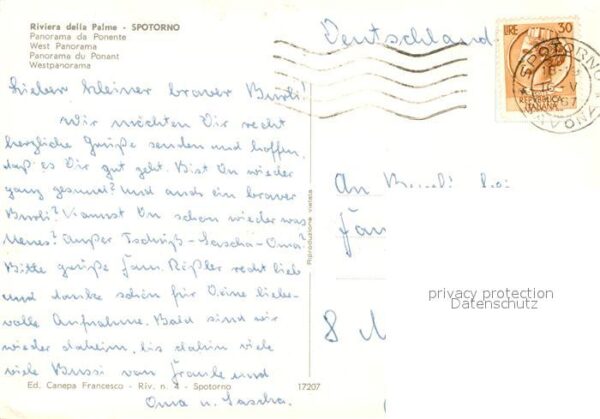 Riviera della Palme - SPOTORNO
Panorama da Ponente
West Panorama
Panorama du Ponant
Westpanorama
Deutschland
LIRE 30
REPUBBLICA
ITALIANA
SPOTORNO
Lieber kleiner braver Burli!
Wir möchten Dir recht
herzliche Grüße senden und hoffen,
daß es Dir gut geht. Bist Du wieder
ganz gesund? Und auch ein braver
Burli? Kannst Du schon wieder was
Neues? Außer Tschüß-Sascha-Oma?
Bitte grüße Fam. Rößler recht lieb
und danke schön für Deine liebe-
volle Aufnahme. Bald sind wir
wieder daheim, bis dahin viele
viele Bussi von Frauke und
Oma u. Sascha.
An
Fam
8 M
Riproduzione vietata
privacy protection
Datenschutz
Ed. Canepa Francesco - Riv. n. 4 - Spotorno 17207